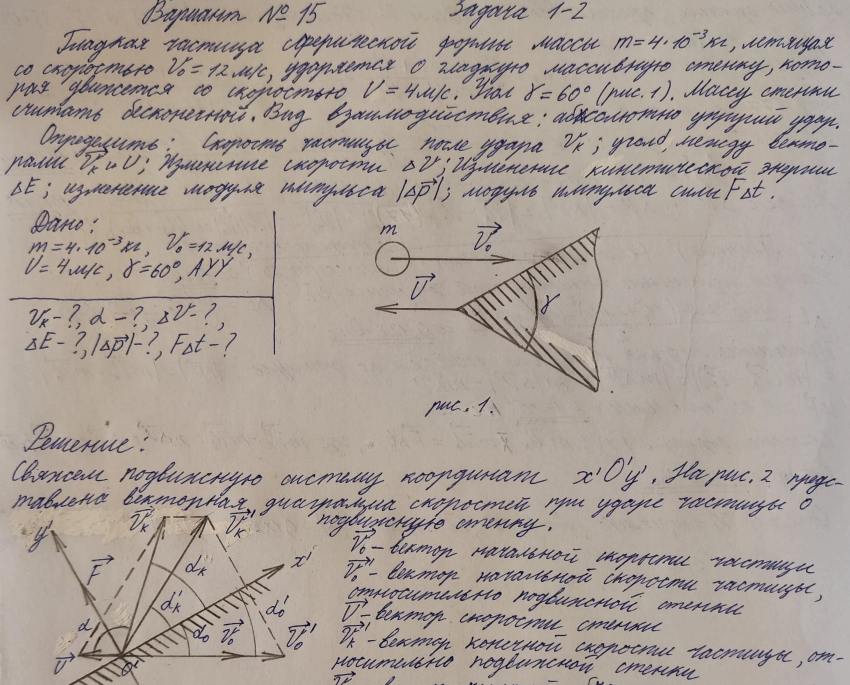 Вариант № 15 Задача 1-2
Гладкая частица сферической формы массы m = 4·10⁻³ кг, летящая
со скоростью V₀ = 12 м/с, ударяется о гладкую массивную стенку, кото-
рая движется со скоростью U = 4 м/с. Угол γ = 60° (рис. 1). Массу стенки
считать бесконечной. Вид взаимодействия: абсолютно упругий удар.
Определить: Скорость частицы после удара Vₖ; угол α, между векто-
рами V⃗ₖ и U; Изменение скорости ΔV; Изменение кинетической энергии
ΔE; изменение модуля импульса |Δp⃗|; модуль импульса силы FΔt.
Дано:
m = 4·10⁻³ кг, V₀ = 12 м/с,
U = 4 м/с, γ = 60°, АУУ
Vₖ - ?, α - ?, ΔV - ?,
ΔE - ?, |Δp⃗| - ?, FΔt - ?
m V⃗₀
U⃗ γ
рис. 1.
Решение:
Свяжем подвижную систему координат x'O'y'. На рис. 2 предс-
тавлена векторная диаграмма скоростей при ударе частицы о
подвижную стенку.
y' V⃗ₖ V⃗ₖ'
F⃗ αₖ' x'
α αₖ' α₀ V⃗₀ α₀' V⃗₀'
U⃗ O'
V⃗₀ - вектор начальной скорости частицы
V⃗₀' - вектор начальной скорости частицы,
относительно подвижной стенки
U⃗ - вектор скорости стенки
V⃗ₖ' - вектор конечной скорости частицы, от-
носительно подвижной стенки